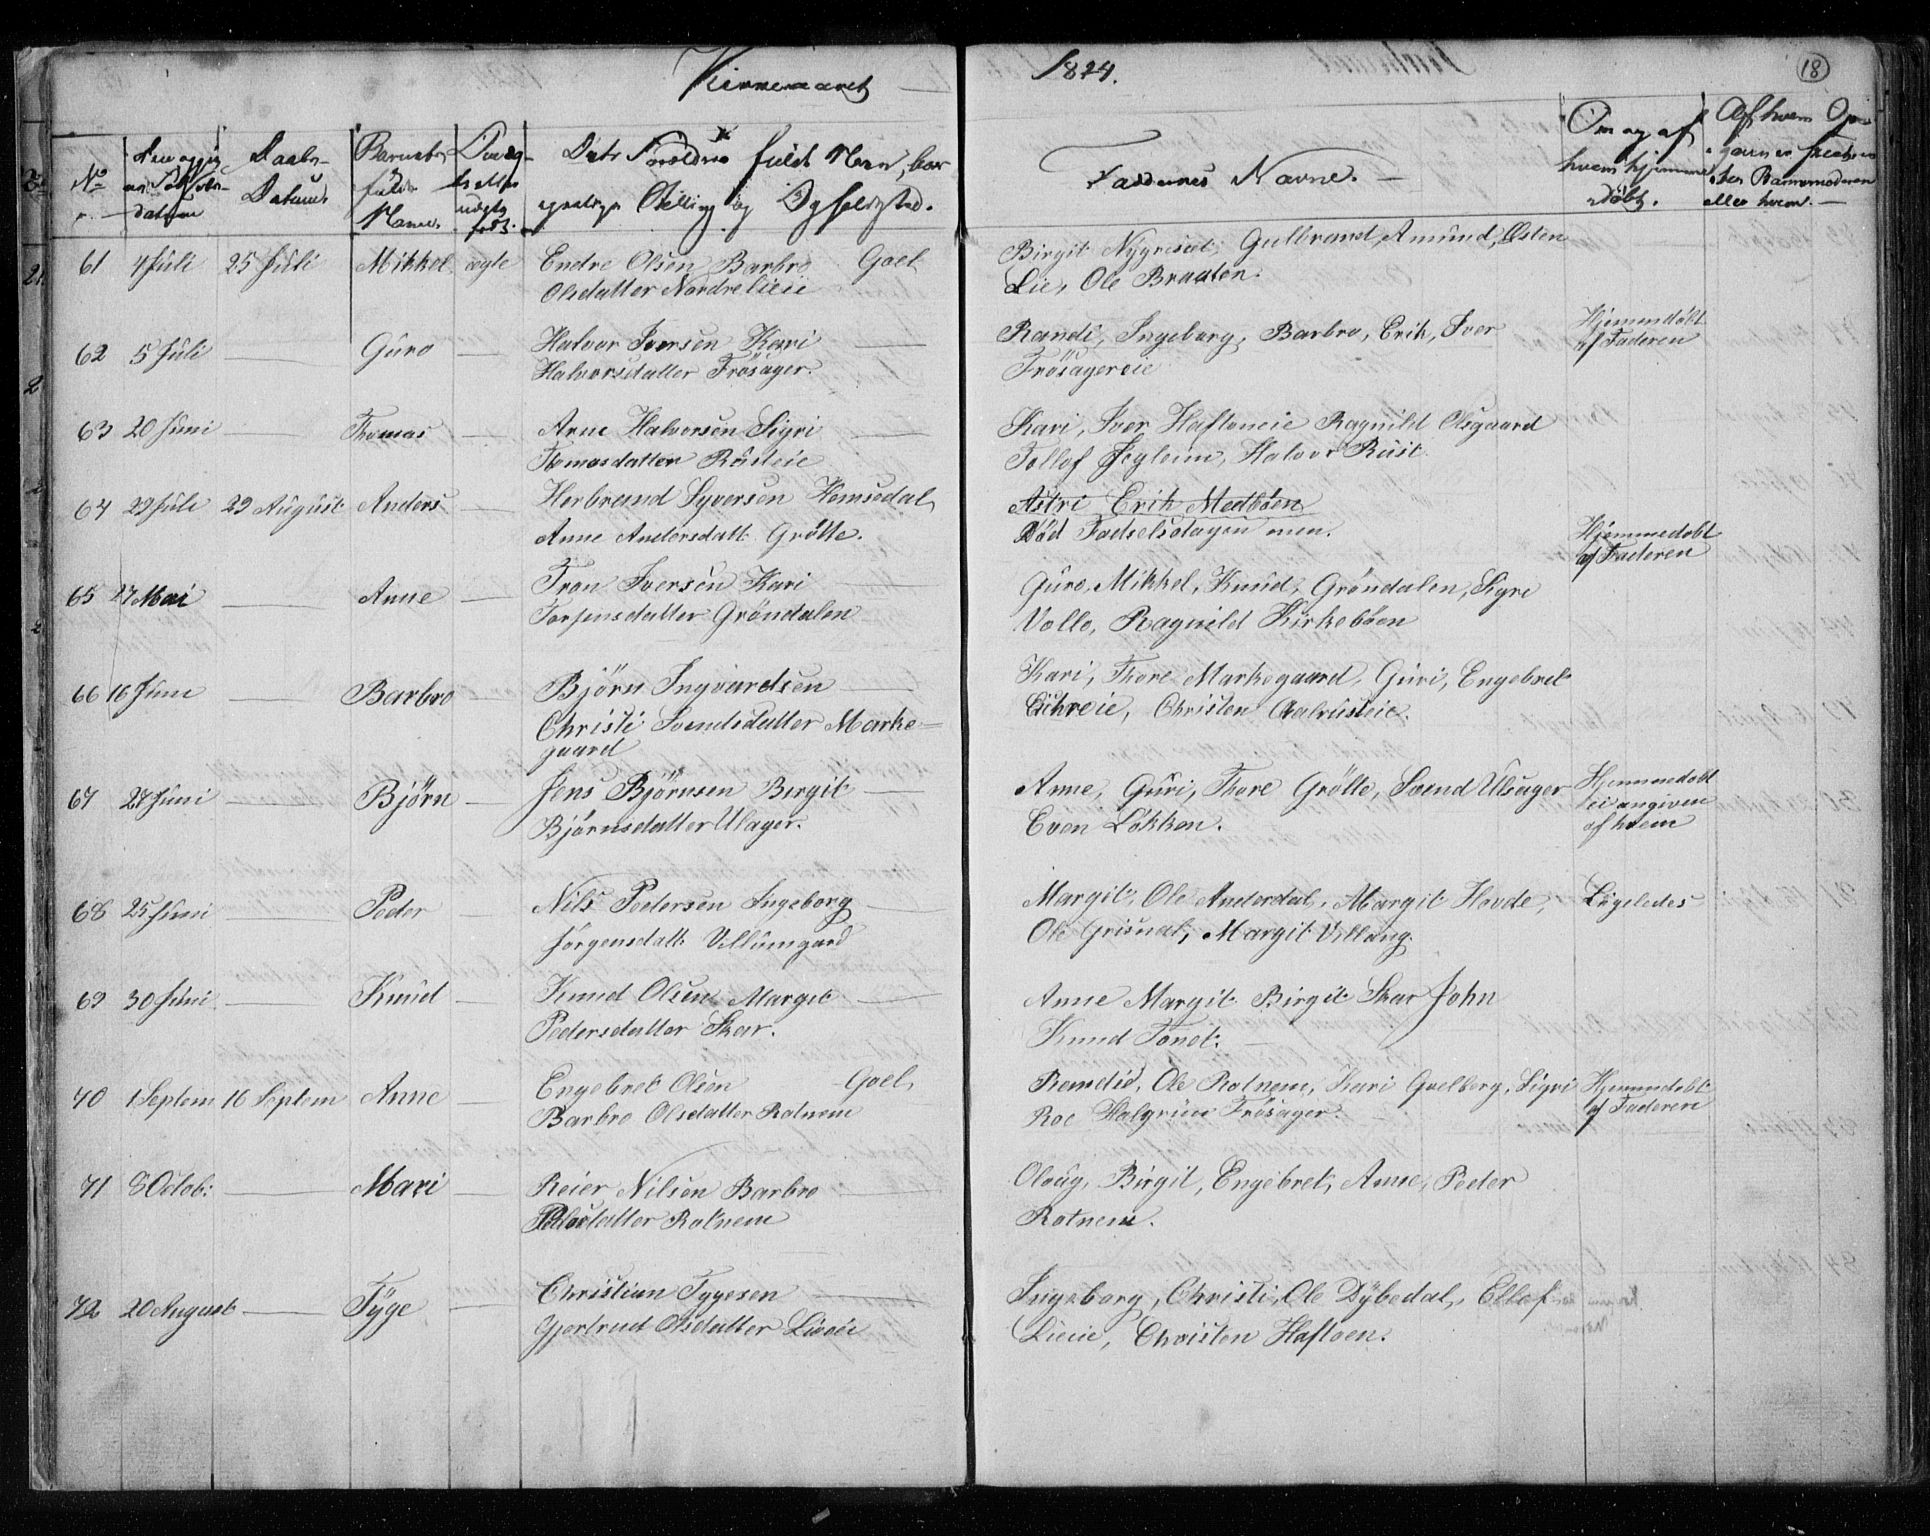 Kirkeaaret 1824.
18
No
Den opgivne Fødselsdatum
Daabs-Datum
Barnets fulde Navn
Om ægte eller uægte født.
Dets Forældres fulde Navn, borgerlige Stilling og Opholdsted.
Faddernes Navne.
Om og af hvem hjemmedøbt.
Af hvem
eller hvem.
61 4 Juli 25 Juli Mikkel ægte Endre Olsen Barbro Goel
Olsdatter Nordre Lieeie
Birgit Nygresset, Gulbrand, Amund, Østen
Lie, Ole Braaten.
62 5 Juli Guro — Halvor Iversen Kari —
Halvorsdatter Frøsager.
Randi, Ingeborg, Barbro, Erik, Iver
Frøsagereie
Hjemmedøbt
af Faderen
63 20 Juni — Thomas — Arne Halvorsen Sigri —
Tomasdatter Rusteie
Kari, Iver Haftoneie Ragnild Olsgaard
Tollof Jegleim, Halvor Rust
64 29 Juli 29 August Anders — Herbrand Syversen Hemsedal
Anne Andersdatt. Grøtte.
Astri Erik Medbøen
Død Fødselsdagen men.
Hjemmedøbt
af Faderen
65 27 Mai — Anne — Tron Iversen Kari —
Torsensdatter Grøndalen
Guro, Mikkel, Knud, Grøndalen, Sigre
Volle, Ragnild Kirkebøen
66 16 Juni — Barbro — Bjørn Ingvardsen —
Christi Svendsdatter Marke=
gaard
Kari, Thore Markegaard, Guri, Engebret
Eikreie, Christen Aalrusteie.
67 27 Juni — Bjørn — Jens Bjørnsen Birgit —
Bjørnsdatter Ulsager.
Anne, Guri, Thore Grøtte, Svend Ulsager
Even Løkken.
Hjemmedøbt
ei angiven
af hvem
68 25 Juni — Peder — Nils Pedersen Ingeborg —
Jørgensdatt. Villumgard
Margit, Ole Anderdal, Margit Hovde,
Ole Grisnat, Margit Villang.
Ligeledes
69 30 Juni — Knud — Knud Olsen Margit —
Pedersdatter Skar.
Anne Margit Birgit Skar John
Knud Tonet.
70 1 Septem 16 Septem Anne — Engebret Olsen Goel
Barbro Olsdatter Rotnem
Remdid, Ole Rotnem, Kari Goelberg, Sigri
Roe Halgrim Frøsager.
Hjemmedøbt
af Faderen
71 8 Octob: — Mari — Reier Nilsen Barbro —
Rotnem
Oloug, Birgit, Engebret, Anne, Peder
Rotnem.
72 20 August — Tyge — Christian Tygesen —
Gjertrud Olsdatter Lieeie
Ingeborg, Christi, Ole Dybedal, Ellef
Lieeie, Christen Haftoen.